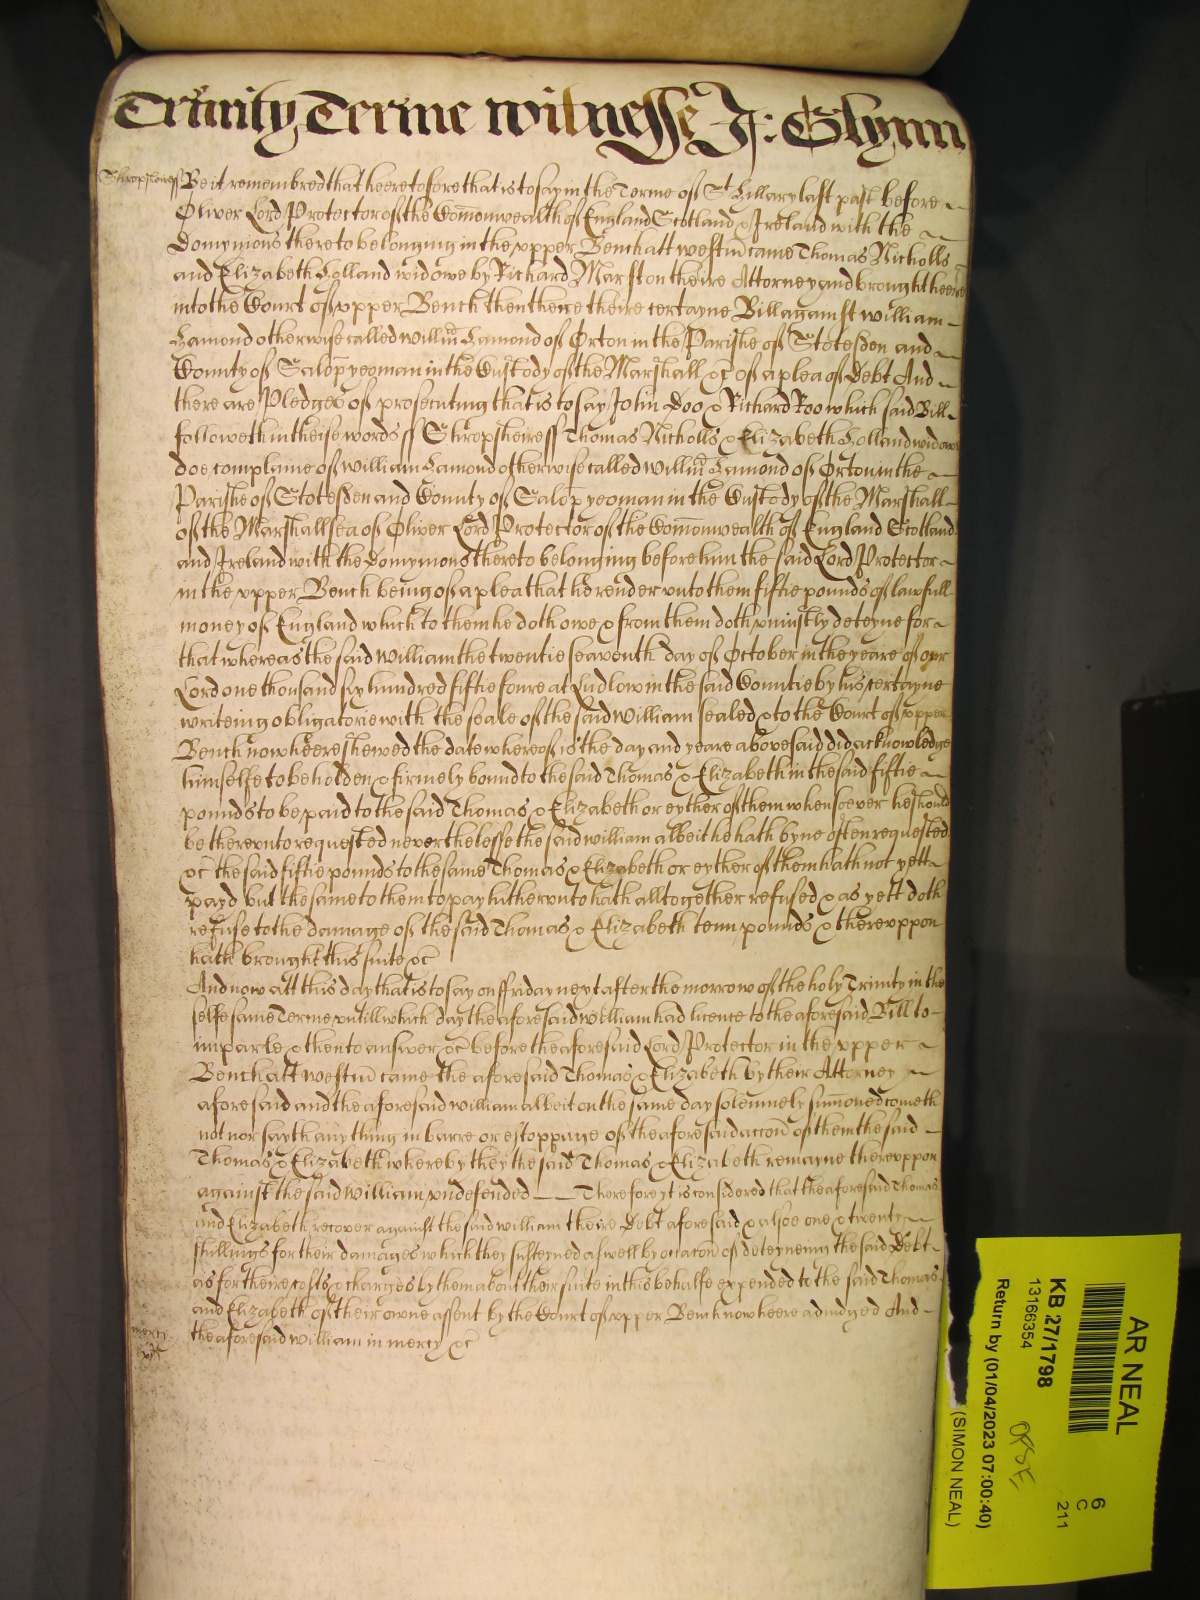 Trinity Terme witnesse J: Glynn
Shropsheire ss Be it remembred that heeretofore that is to say in the Terme of St Hillary last past before
Oliver Lord Protector of the Com̄onwealth of England Scotland & Ireland with the
Domynions thereto belonging in the vpper Bench att westm̄ came Thomas Nicholls
and Elizabeth Holland widowe by Richard Marston theire Attorney and brought heere
into the Court of vpper Bench then there theire certayne Bill against william
Hamond otherwise called Willm̄ Hamond of Orton in the Parishe of Stotesden and
County of Salop̄ yeoman in the Custody of the Marshall &c̄ of a plea of Debt And
there are Pledges of prosecuting that is to say John Doo & Richard Roo which said Bill
followeth in theise words ss Shropsheire ss Thomas Nicholls & Elizabeth Holland widow
doe complaine of william Hamond otherwise called willm̄ Hamond of Orton in the
Parishe of Stotesden and County of Salop̄ yeoman in the Custody of the Marshall
of the Marshallsea of Oliver Lord Protector of the Com̄onwealth of England Scotland
and Ireland with the Domynions thereto belonging before him the said Lord Protector
in the vpper Bench being of a plea that he render vnto them fiftie pounds of lawfull
money of England which to them he doth owe & from them doth vniustly deteyne for
that whereas the said William the twentie seaventh day of October in the yeare of our
Lord one thousand six hundred fiftie foure at Ludlow in the said Countie by his certayne
writeing obligatorie with the seale of the said William sealed & to the Court of vpper
Bench now heere shewed the date whereof is the day and yeare abovesaid did acknowledge
himselfe to be holden & firmely bound to the said Thomas & Elizabeth in the said fiftie
pounds to be paid to the said Thomas & Elizabeth or eyther of them whensoever he should
be therevnto requested neverthelesse the said william albeit he hath byne often requested
&c̄ the said fiftie pounds to the same Thomas & Elizabeth or eyther of them hath not yett
payd but the same to them to pay hithervnto hath alltogether refused & as yett doth
refuse to the damage of the said Thomas & Elizabeth tenn pounds & therevppon
hath brought this suite &c̄
And now att this day that is to say on ffriday next after the morrow of the holy Trinity in the
selfe same Terme vntill which day the aforesaid william had licence to the aforesaid Bill to
imparle & then to answer &c̄ before the aforesaid Lord Protector in the vpper
Bench att westm̄ came the aforesaid Thomas & Elizabeth by their Attorney
aforesaid and the aforesaid william albeit on the same day solemnely sum̄oned cometh
not nor sayth any thing in barre or estoppage of the aforesaid accon̄ of them the said
Thomas & Elizabeth whereby they the said Thomas & Elizabeth remayne therevppon
against the said william vndefended Therefore yt is considered that the aforesaid Thomas
and Elizabeth recover against the said william theire Debt aforesaid & alsoe one & twenty
shillings for their damages which they susteyned aswell by occacon̄ of deteyneing the said Debt
as for theire costs & charges by them about their suite in this behalfe expended to the said Thomas
and Elizabeth of their owne assent by the Court of vpper Bench now heere adiudged And
mercy the aforesaid William in mercy &c̄
AR NEAL
6
C
211
KB 27/1798
13166354
Return by (01/04/2023 07:00:40)
(SIMON NEAL)